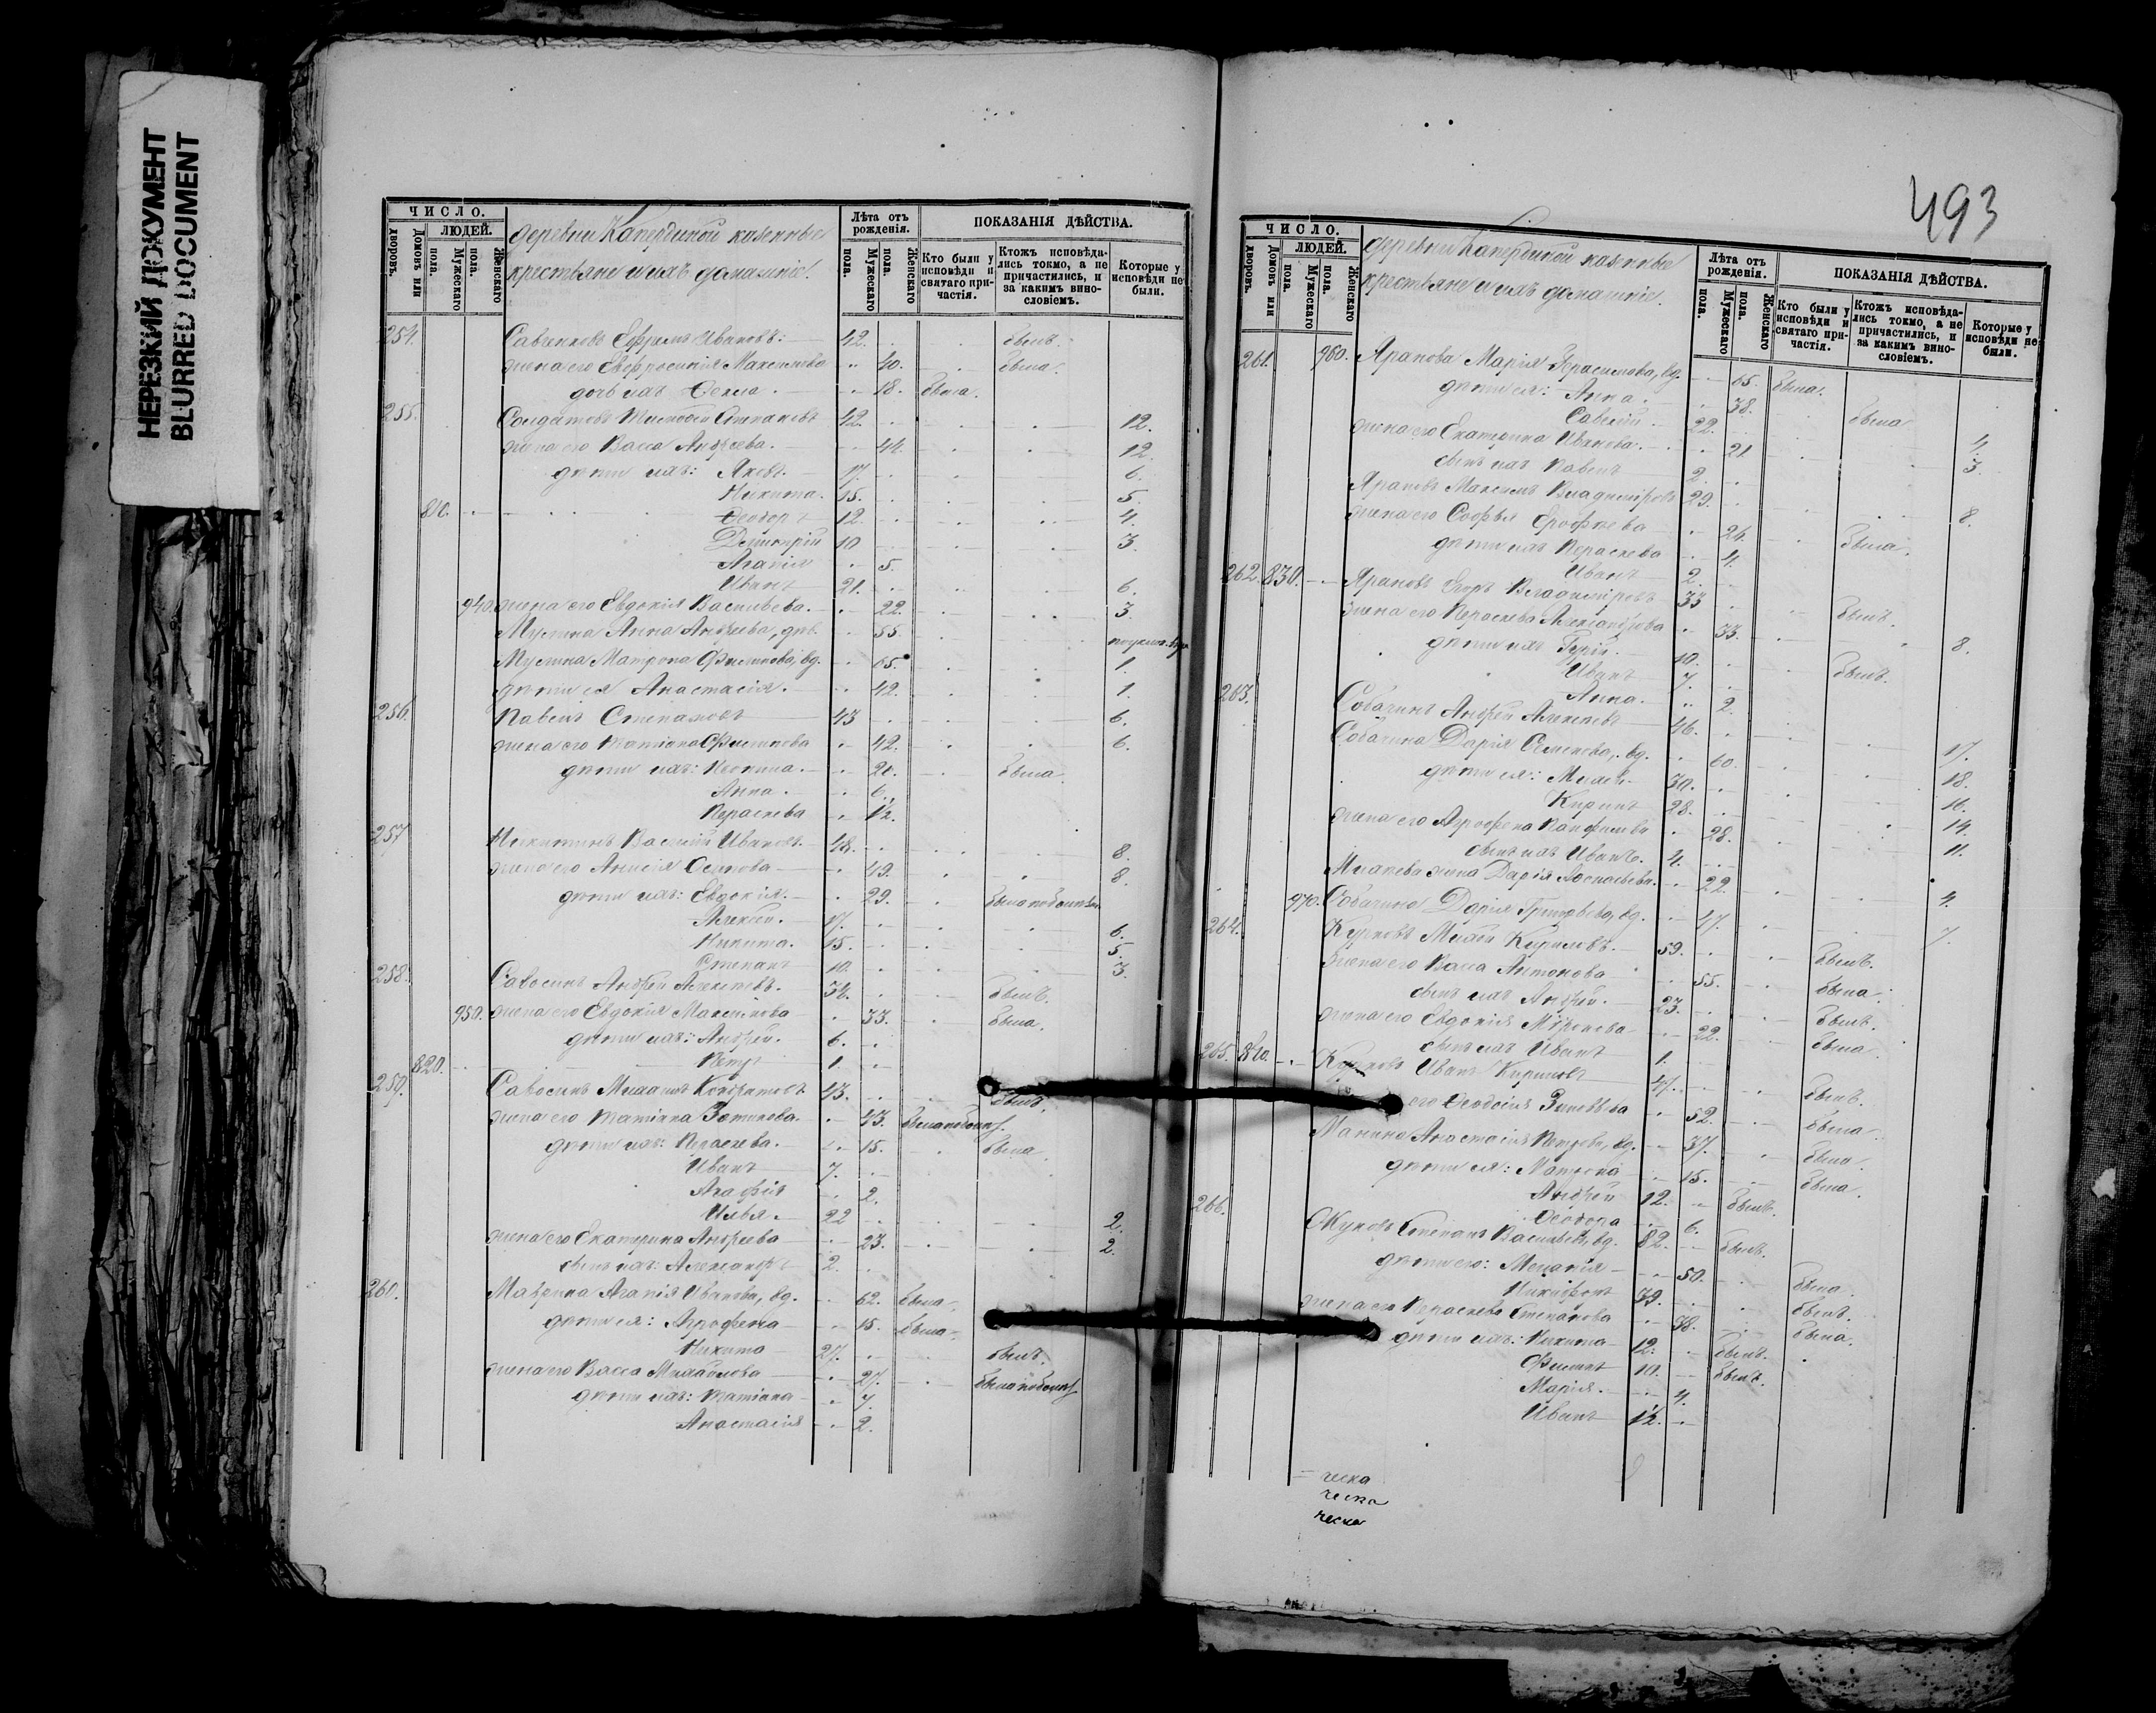 НЕРЕЗКИЙ ДОКУМЕНТ
BLURRED DOCUMENT
ЧИСЛО.
ЛЮДЕЙ.
Домовъ или дворовъ.
Мужескаго пола.
Женскаго пола.
деревни казенные
крестьяне и ихъ домашніе.
Лѣта отъ рожденія.
Мужескаго пола.
Женскаго пола.
ПОКАЗАНІЯ ДѢЙСТВА.
Кто были у исповѣди и святаго причастія.
Ктожъ исповѣдались токмо, а не причастились, и за какимъ винословіемъ.
Которые у исповѣди не были.
254. Ефремъ Ивановъ. 42. былъ.
жена его Евфросинія Максимова 40. была.
дочь ихъ Ѳекла. 18. была.
255. Солдатовъ Степановъ 42. 12.
жена его Васса Андреева. 44. 12.
дѣти ихъ: Яковъ. 17. 6.
Никита. 15. 5.
810. Ѳеодоръ 12. 4.
Димитрій 10 3.
Агапія 5.
Иванъ 21. 6.
940. жена его Евдокія Васильева. 22. 3.
Анна Андреева, 55.
Матрона Филипова, вд. 65. 1.
дѣти ея Анастасія. 42. 1.
256. Павелъ Степановъ 43 6.
жена его Татіана Филипова 42. 6.
дѣти ихъ: 20. была.
Анна. 6.
Параскева 1½.
257 Никитинъ Василій Ивановъ. 48. 8.
жена его Анисія Осипова 49. 8.
дѣти ихъ: Евдокія. 29.
Алексѣй. 17. 6.
Никита. 15. 5.
Степанъ 10. 3.
258. Савосинъ Андрей Алексѣевъ. 34. былъ.
950. жена его Евдокія Максимова 33. была.
дѣти ихъ: Андрей. 6.
820. Петръ 1.
259. Савосинъ Михаилъ Кондратовъ 43. былъ.
жена его Татіана 43.
дѣти ихъ: Параскева. 15. была.
Иванъ 7.
Агафія 2.
Илья. 22 2.
жена его Екатерина Андреева 23. 2.
сынъ ихъ: Александръ 2.
260. Маврина Агапія Иванова, вд. 62. была.
дѣти ея: Агрофена 15. была.
Никита 27. былъ.
жена его Васса Михайлова 27.
дѣти ихъ: Татіана 7.
Анастасія 2.
493
ЧИСЛО.
ЛЮДЕЙ.
Домовъ или дворовъ.
Мужескаго пола.
Женскаго пола.
деревни казенные
крестьяне и ихъ домашніе.
Лѣта отъ рожденія.
Мужескаго пола.
Женскаго пола.
ПОКАЗАНІЯ ДѢЙСТВА.
Кто были у исповѣди и святаго причастія.
Ктожъ исповѣдались токмо, а не причастились, и за какимъ винословіемъ.
Которые у исповѣди не были.
261. 960. Арапова Марія Герасимова, вд. 65. была.
дѣти ея: Анна. 38. была
Савелій. 22. 4.
жена его Екатерина Иванова. 21 3.
сынъ ихъ Павелъ 2.
Араповъ Максимъ Владиміровъ 29. 8.
жена его Софья Ерофеева 24. была.
дѣти ихъ Параскева 4.
Иванъ 2.
262. 830. Араповъ Егоръ Владиміровъ 33 былъ.
жена его Параскева Александрова 33. 8.
дѣти ихъ Гурій. 10. былъ.
Иванъ 7.
Анна. 2.
263. Собачинъ Андрей Алексѣевъ 46. 17.
Собачина Дарія Семенова, вд. 60. 18.
дѣти ея: 30. 16.
Кирилъ 28. 14.
жена его Агрофена Панфилова 28. 11.
сынъ ихъ Иванъ. 4.
жена Дарія 22. 4.
970. Собачина Дарія Григорьева, вд. 47. 7.
264. Кириловъ 59. былъ.
жена его Васса Антонова 55. была.
сынъ ихъ Андрей. 23. былъ.
жена его Евдокія Миронова 22. была.
сынъ ихъ Иванъ 1.
265. 840. Иванъ Кириловъ 47. былъ.
его Ѳеодосія Зиновьева 52. была.
Манина Анастасія Петрова, вд. 37. была.
дѣти ея: Матрона 15. была.
Андрей 12. былъ.
Ѳеодора 6.
266. Жуковъ Степанъ Васильевъ, вд. 82. былъ.
дѣти его: Меланія 50. была.
Никифоръ 39. былъ.
жена его Параскева Степанова 38. была.
дѣти ихъ: Никита 12. былъ.
Филипъ 10. былъ.
Марія. 4.
Иванъ 1½.
ческа
ческа
ческа